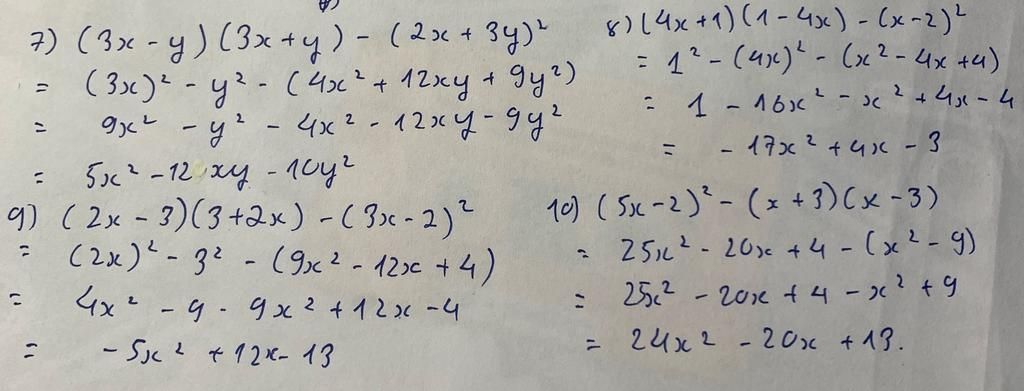 7) (3x - y)(3x + y) - (2x + 3y)²
= (3x)² - y² - (4x² + 12xy + 9y²)
= 9x² - y² - 4x² - 12xy - 9y²
= 5x² - 12xy - 10y²
8) (4x+1)(1-4x) - (x-2)²
= 1² - (4x)² - (x² - 4x + 4)
= 1 - 16x² - x² + 4x - 4
= - 17x² + 4x - 3
9) (2x - 3)(3 + 2x) - (3x - 2)²
= (2x)² - 3² - (9x² - 12x + 4)
= 4x² - 9 - 9x² + 12x - 4
= - 5x² + 12x - 13
10) (5x - 2)² - (x + 3)(x - 3)
= 25x² - 20x + 4 - (x² - 9)
= 25x² - 20x + 4 - x² + 9
= 24x² - 20x + 13.